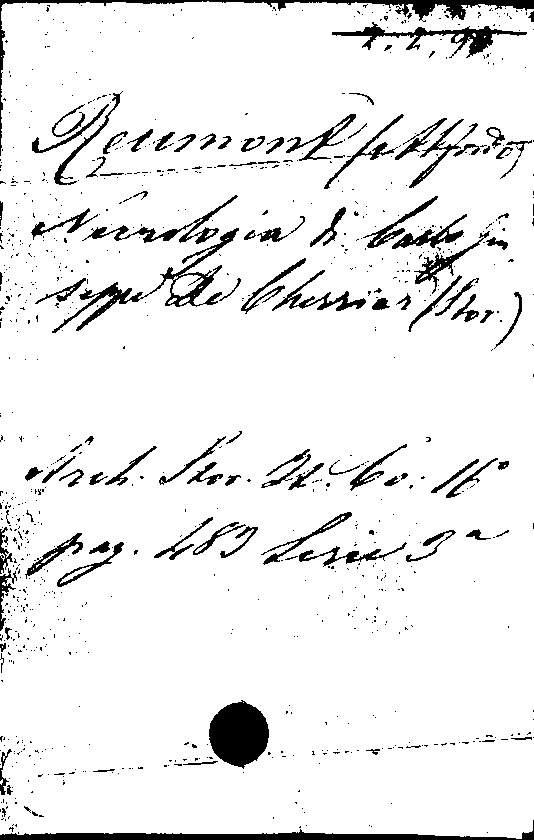 2. 2. 9
Reumont (Alfredo)
Necrologia di Carlo Giu
seppe De Cherrier (Stor.)
Arch. Stor. It. Vo: 16°
pag. 483 Serie 3ª